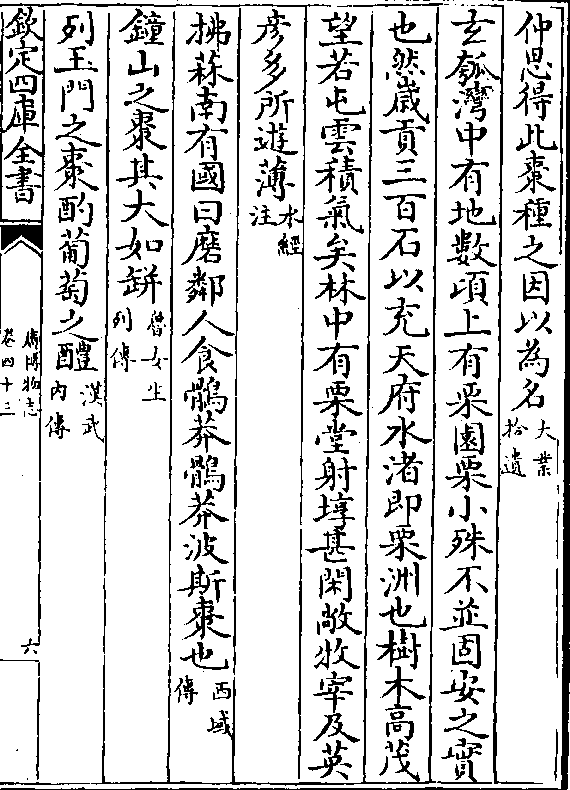 仲思得此棗種之因以為名大業拾遺
玄瓠灣中有地數頃上有栗園栗小殊不並固安之實
也然歲貢三百石以充天府水渚即栗洲也樹木高茂
望若屯雲積氣矣林中有栗堂射埻甚閑敞牧宰及英
彦多所遊薄水經注
拂菻南有國曰磨鄰人食鶻莽鶻莽波斯棗也西域傳
鐘山之棗其大如缾魯女生列傳
列玉門之棗酌葡萄之醴漢武内傳
欽定四庫全書
廣博物志
卷四十三
六